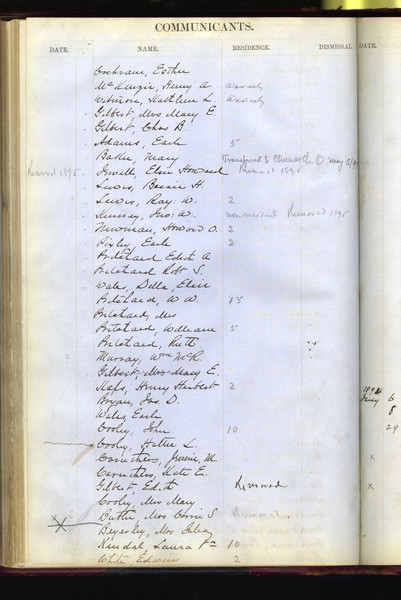 COMMUNICANTS.
DATE. NAME. RESIDENCE. DISMISSAL DATE.
Cochrane, Esther
McKenzie, Henry A Waverly
Witmore, Kathleen L. Waverly
Gilbert, Mrs Mary E.
Gilbert, Chas B.
Adams, Earle 5
Baker, Mary Transferred to May 5/97
Removed 1895 Jewell, Elsie Howard Removed 1895
Lewis, Bessie H.
Lewis, Ray. W. 2
Kinney, Jno. W. non resident Removed 1895
Newman, Howard O. 2
Pixley, Earle 2
Pritchard Edith A
Pritchard Robt S.
Wales, Della, Elsie
Pritchard, W. W. 15
Pritchard, Mrs
Pritchard, William 5
Pritchard, Ruth
Murray, Wm McK.
Gilbert, Mrs Mary E.
Henry Herbert 2
Bryan, Jas D.
Wales, Earle
Cooley, John 10
Cooley, Hattie L.
Caruthers, Jennie, M.
Caruthers, Kate E.
Gilbert, Edith Removed
Cooley, Mrs Mary
Butler, Mrs Carrie S
Beyerley, Mrs
Kendal, Laura 10
White, Edwin 2
1894
6
8
29
x
x